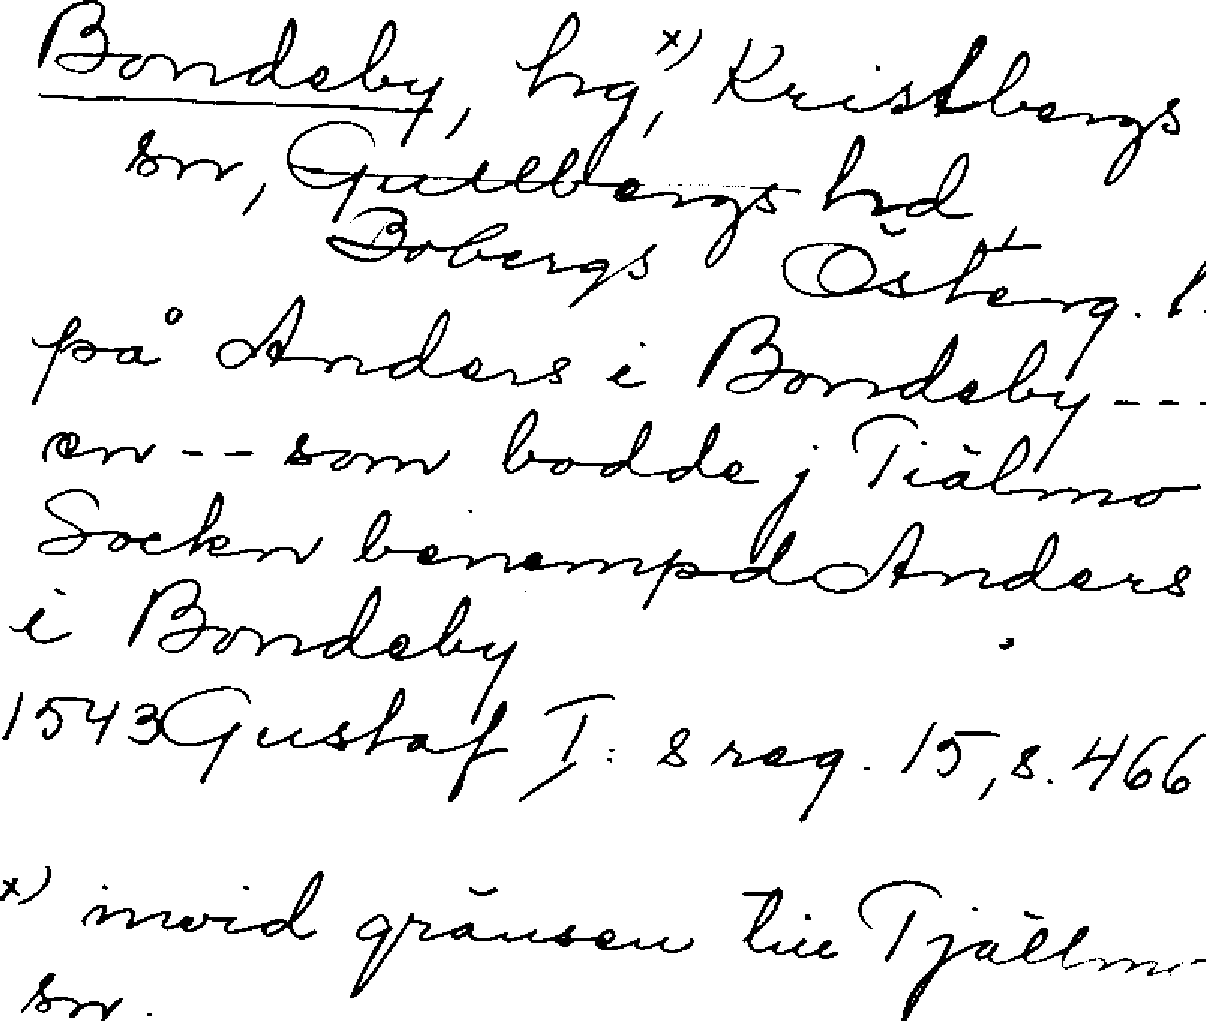 Bondeby, hg,x) Kristbergs
sn, Gullbergs hd
Bobergs Österg. l.
på Anders i Bondeby ---
en -- som bodde j Tiälmo
Sockn benempd Anders
i Bondeby
1543 Gustaf I:s reg. 15, s. 466
x) invid gränsen till Tjällmo
sn.